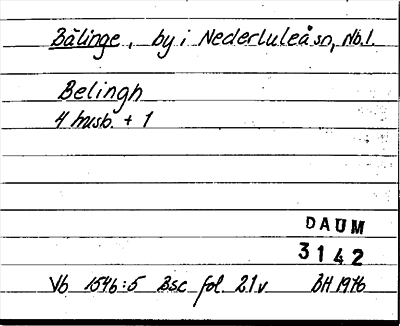 Bälinge, by i Nederluleå sn, Nb.l.
Belingh
4 husb. + 1
DAUM
3142
Vb 1546:5 Bsc fol. 21v BH 1976